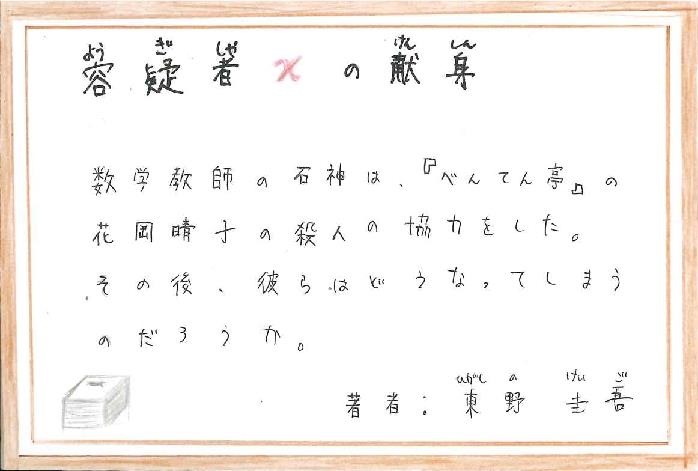 よう ぎ しゃ けん しん
容疑者xの献身
数学教師の石神は、『べんてん亭』の
花岡晴子の殺人の協力をした。
その後、彼らはどうなってしまう
のだろうか。
ひがしの けい ご
著者：東野 圭吾